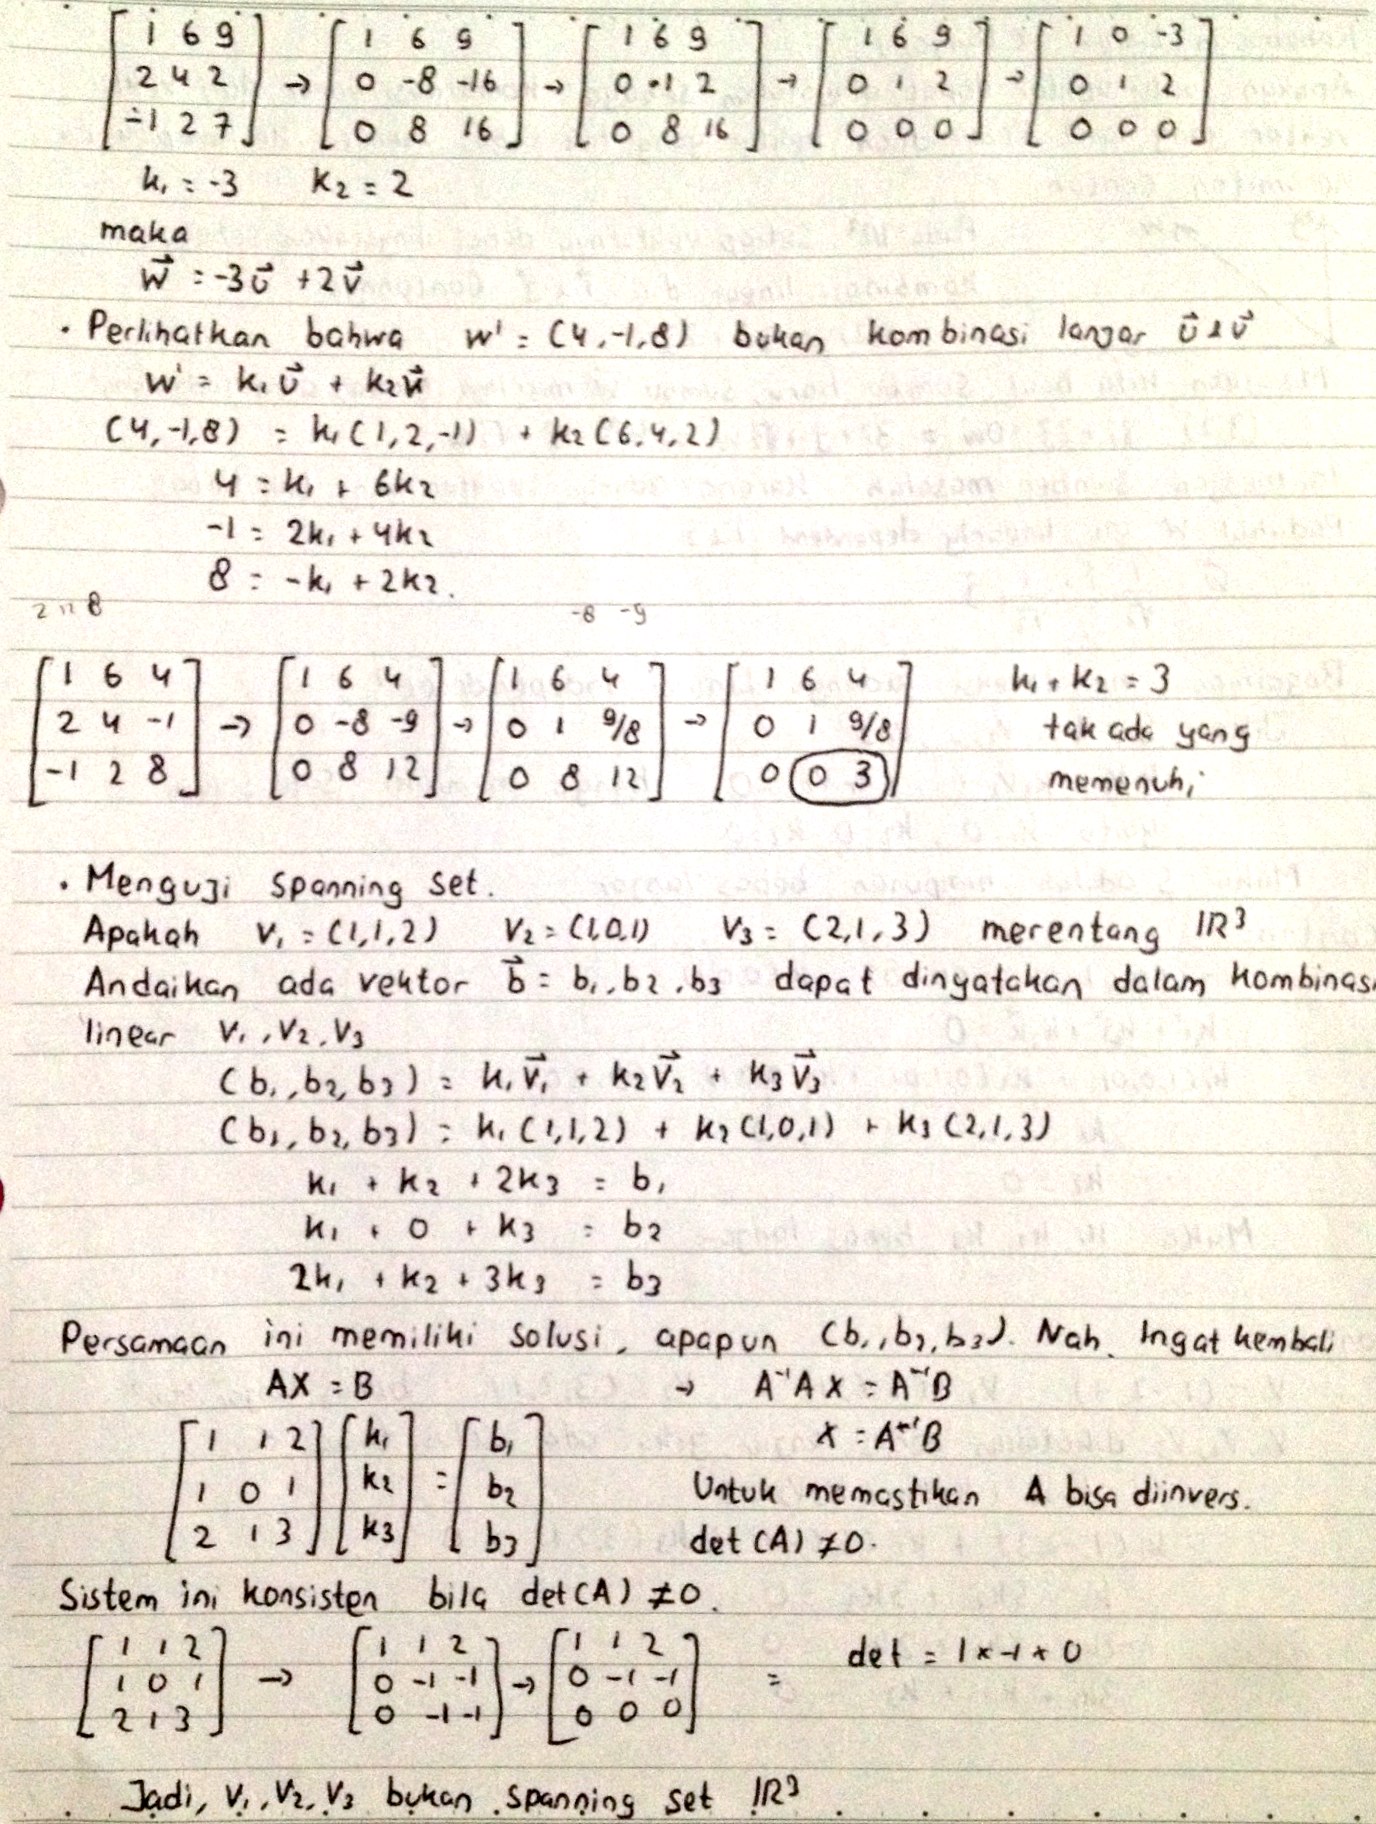 [1 6 9; 2 4 2; -1 2 7] → [1 6 9; 0 -8 -16; 0 8 16] → [1 6 9; 0 ·1 2; 0 8 16] → [1 6 9; 0 1 2; 0 0 0] → [1 0 -3; 0 1 2; 0 0 0]
k₁ = -3 k₂ = 2
maka
w⃗ = -3u⃗ + 2v⃗
· Perlihatkan bahwa w' = (4,-1,8) bukan kombinasi lanjar u⃗ & v⃗
w' = k₁u⃗ + k₂v⃗
(4,-1,8) = k₁(1,2,-1) + k₂(6,4,2)
4 = k₁ + 6k₂
-1 = 2k₁ + 4k₂
8 = -k₁ + 2k₂.
2 12 8 -8 -9
[1 6 4; 2 4 -1; -1 2 8] → [1 6 4; 0 -8 -9; 0 8 12] → [1 6 4; 0 1 9/8; 0 8 12] → [1 6 4; 0 1 9/8; 0 0 3] k₁ + k₂ = 3
tak ada yang
memenuhi
· Menguji spanning set.
Apakah v₁ = (1,1,2) v₂ = (1,0,1) v₃ = (2,1,3) merentang IR³
Andaikan ada vektor b⃗ = b₁, b₂, b₃ dapat dinyatakan dalam kombinasi
linear v₁, v₂, v₃
(b₁, b₂, b₃) = k₁v⃗₁ + k₂v⃗₂ + k₃v⃗₃
(b₁, b₂, b₃) = k₁(1,1,2) + k₂(1,0,1) + k₃(2,1,3)
k₁ + k₂ + 2k₃ = b₁
k₁ + 0 + k₃ = b₂
2k₁ + k₂ + 3k₃ = b₃
Persamaan ini memiliki solusi, apapun (b₁, b₂, b₃). Nah, Ingat kembali
AX = B → A⁻¹AX = A⁻¹B
X = A⁻¹B
[1 1 2; 1 0 1; 2 1 3] [k₁; k₂; k₃] = [b₁; b₂; b₃]
Untuk memastikan A bisa diinvers.
det(A) ≠ 0.
Sistem ini konsisten bila det(A) ≠ 0.
[1 1 2; 1 0 1; 2 1 3] → [1 1 2; 0 -1 -1; 0 -1 -1] → [1 1 2; 0 -1 -1; 0 0 0] = det = 1 x -1 x 0
Jadi, v₁, v₂, v₃ bukan spanning set IR³